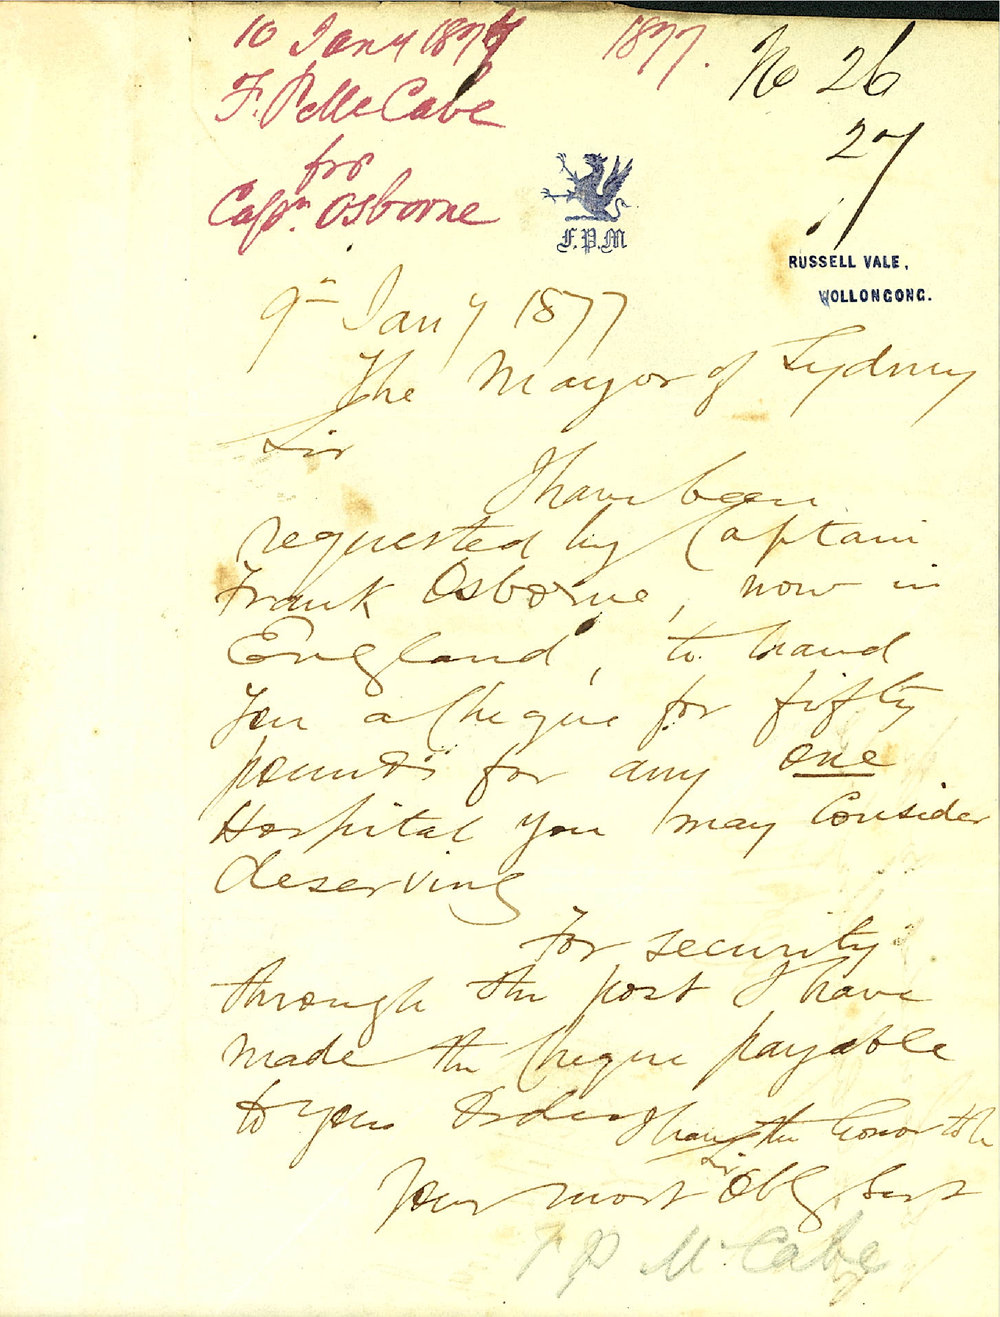 10 Jany 1877 1877.
F. P McCabe
for
Capn. Osborne
No 26
27
F.P.M
RUSSELL VALE,
WOLLONGONG.
9th Jany 1877
The Mayor of Sydney
Sir
I have been
requested by Captain
Frank Osborne, now in
England, to hand
you a Cheque for fifty
pounds for any one
Hospital you may Consider
deserving
For security
through the post I have
made the Cheque payable
to your Order I have the honor to be
Sir
Your most Obt Servt
F P McCabe